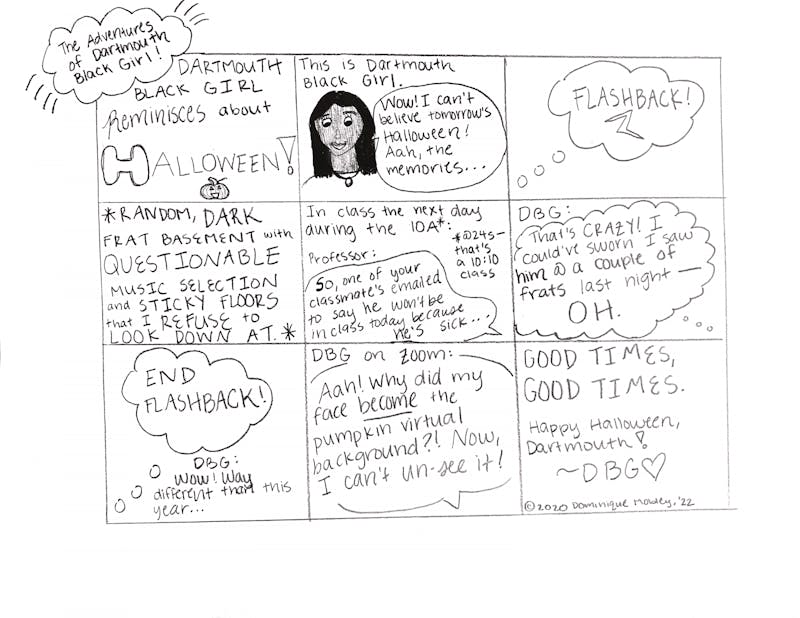 The Adventures
of Dartmouth
Black Girl!
DARTMOUTH
BLACK GIRL
Reminisces about
HALLOWEEN!
This is Dartmouth
Black Girl.
Wow! I can't
believe tomorrow's
Halloween!
Aah, the
memories...
FLASHBACK!
*RANDOM, DARK
FRAT BASEMENT with
QUESTIONABLE
MUSIC SELECTION
and STICKY FLOORS
that I REFUSE to
LOOK DOWN AT.*
In class the next day
during the 10A*:
*@245-
that's
a 10:10
class
Professor:
So, one of your
classmate's emailed
to say he won't be
in class today because
he's sick...
DBG:
That's CRAZY! I
could've sworn I saw
him @ a couple of
frats last night—
OH.
END
FLASHBACK!
DBG:
Wow! Way
different than this
year...
DBG on Zoom:
Aah! Why did my
face become the
pumpkin virtual
background?! Now,
I can't un-see it!
GOOD TIMES,
GOOD TIMES.
Happy Halloween,
Dartmouth!
~DBG♡
©2020 Dominique Mobley, '22